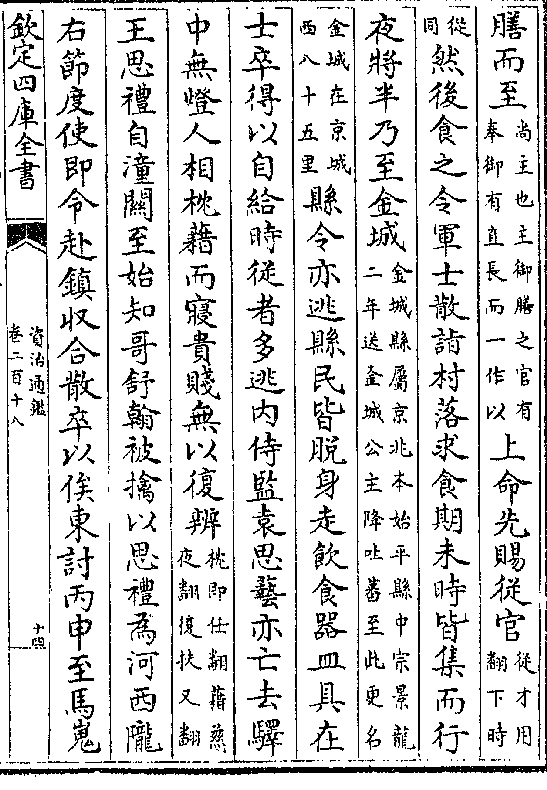 膳而至尚主也主御膳之官有奉御有直長而一作以上命先賜從官從才用翻下時
從同然後食之令軍士散詣村落求食期未時皆集而行
夜將半乃至金城金城縣屬京兆本始平縣中宗景龍二年送金城公主降吐蕃至此更名
金城在京城西八十五里縣令亦逃縣民皆脫身走飲食器皿具在
士卒得以自給時從者多逃内侍監袁思藝亦亡去驛
中無燈人相枕藉而寢貴賤無以復辨枕即任翻藉慈夜翻復扶又翻
王思禮自潼關至始知哥舒翰被擒以思禮為河西隴
右節度使即令赴鎮収合散卒以俟東討丙申至馬嵬
欽定四庫全書
資治通鑑
卷二百十八